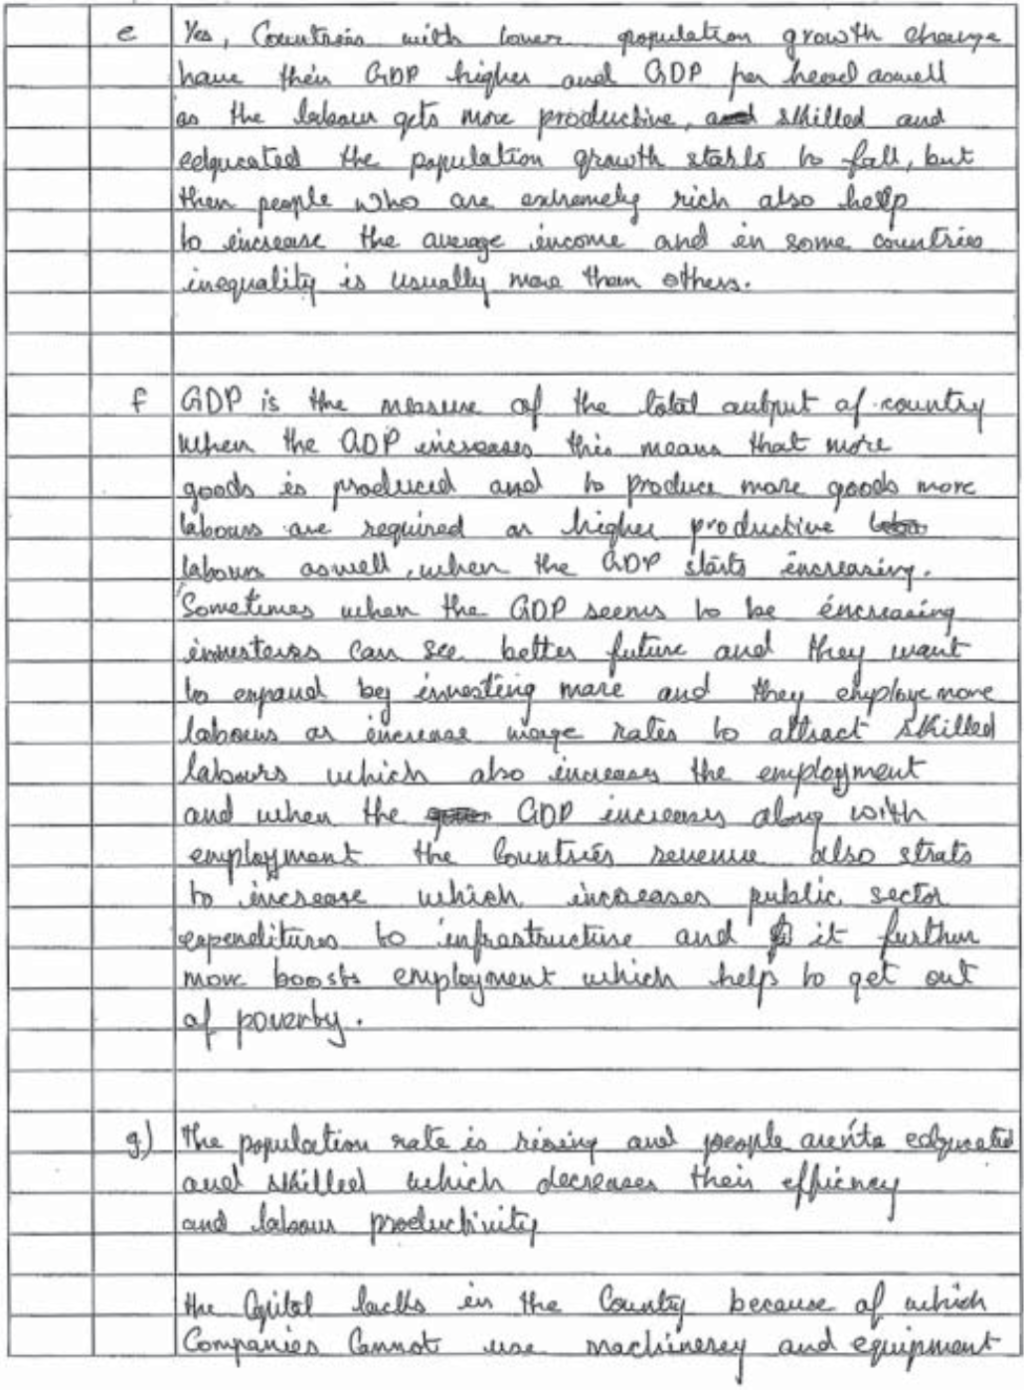 e Yes, Countries with lower population growth change
have their GDP higher and GDP per head aswell
as the labour gets more productive, skilled and
edqucated the population growth starts to fall, but
then people who are extremely rich also help
to increase the average income and in some countries
inequality is usually more than others.
f GDP is the measure of the total output of country
when the GDP increases this means that more
goods is produced and to produce more goods more
labours are required or higher productive
labours aswell, when the GDP starts increasing.
Sometimes when the GDP seems to be increasing
investers can see better future and they want
to expand by investing more and they employe more
labours or increase wage rates to attract skilled
labours which also increases the employment
and when the GDP increases along with
employment the Countries revenue also strats
to increase which increases public sector
expenditures to infrastructure and it further
more boosts employment which helps to get out
of poverty.
g) The population rate is rising and people edqucated
and skilled which decreases their efficncy
and labour productivity
the Capital lacks in the Country because of which
Companies Cannot use machinerey and equipment